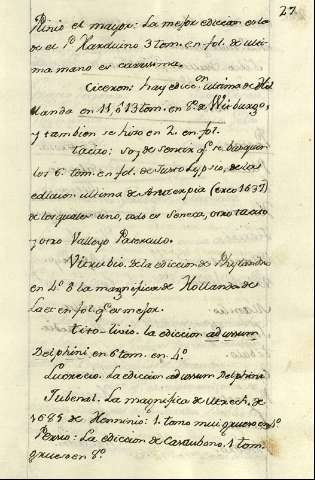 27.
Plinio el mayor: La mejor edicion es la
de el P.e Harduino 3 tom. en fol. de ulti-
ma mano es carissima.
Ciceron: hay edicc.on ultima de Ho-
landa en 11, ò 13 tom. en 8.o de Wisburgo,
y tambien se hizo en 2. en fol.
Tacito: soy de sentir q.e se busquen
los 6. tom. en fol. de Justo Lypsio, de la
edicion ultima de Antverpia (creo 1637)
de los quales uno, todo es Seneca, otro tacito
y otro Valleyo Paterculo.
Vitrubio. de la ediccion de Phylandro
en 4.o ò la magnifica de Hollanda de
Laet en fol. q.e es mejor.
Tito-livio. la ediccion ad usum
Delphini en 6 tom. en 4.o
Lucrecio. La ediccion ad usum Delphini
Jubenal. La magnifica de Utrech, de
1685 de Henninio: 1. tomo mui grueso en 4.o
Persio: La ediccion de Casaubono. 1 tom.
grueso en 8.o